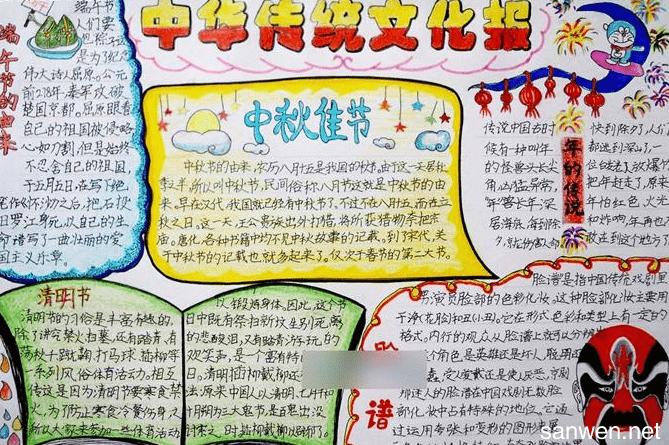 中华传统文化报
端午节的由来
端午节
人们要
为了纪念
伟大诗人屈原。公元
前278年,秦军攻破
楚国京都。屈原眼看
自己的祖国被侵略
心如刀割,但是始终
不忍舍自己的祖国,
于五月五日,在写下绝
怀沙之后,抱石投
汨罗江身死,以自己的生
命谱写了一曲壮丽的爱
国主义乐章。
中秋佳节
中秋节的由来,农历八月十五是我国的
所以叫中秋节,民间俗称八月节这就是中秋节的由
来。早在汉代,我国就已经有中秋节了,不过不在八月五,而在立
秋之日。这一天,王公贵族出外打猎,将所获猎物祭把宗
各种书籍中均不见中秋故事的记载。到了宋代,关
于中秋节的记载也就多起来了。仅次于春节的第二大节。
年的传说
传说中国古时
候有一种叫年
的怪兽头长尖
角,凶猛异常,
年兽长年深
居海底,每到除
夕,
快到除夕了,人们
都逃到深山,一
位白发
把年赶走了,原来
年怕红色、火光
和炸响,年再也
敢走到这个地方了
清明节
清明节的习俗是丰富有趣的,
除了讲究禁火、扫墓,还有踏青、
荡秋千、蹴鞠、打马球、插柳等
一系列风俗体育活动。相
传这是因为清明节要寒食禁
火,为了防止寒食冷餐伤身,
所以大家来参加一些体育活动
以锻炼身体。因此,这个节
日中既有祭扫新坟生别死离
的悲酸泪,又有踏青游玩的
欢笑声,是一个富有特
日。清明插柳戴柳还
法:原来中国人以清明、七月半和
十月朔为三大鬼节,是百鬼出没
讨索之时
脸谱
脸谱是指中国传统戏剧里
男演员脸部的色彩化妆。这种脸部化妆主要用
于净(花脸)和丑(小丑)。它在形式、色彩和类型上有一定的
格式。内行的观众从脸谱上就可以分辨
个角色是英雄还是坏人,聪明
受人爱戴还是使人厌恶,京剧
迷人的脸谱在中国戏剧无数脸
部化妆中占有特殊的地位,它通
过运用夸张和变形的图形
sanwen.net